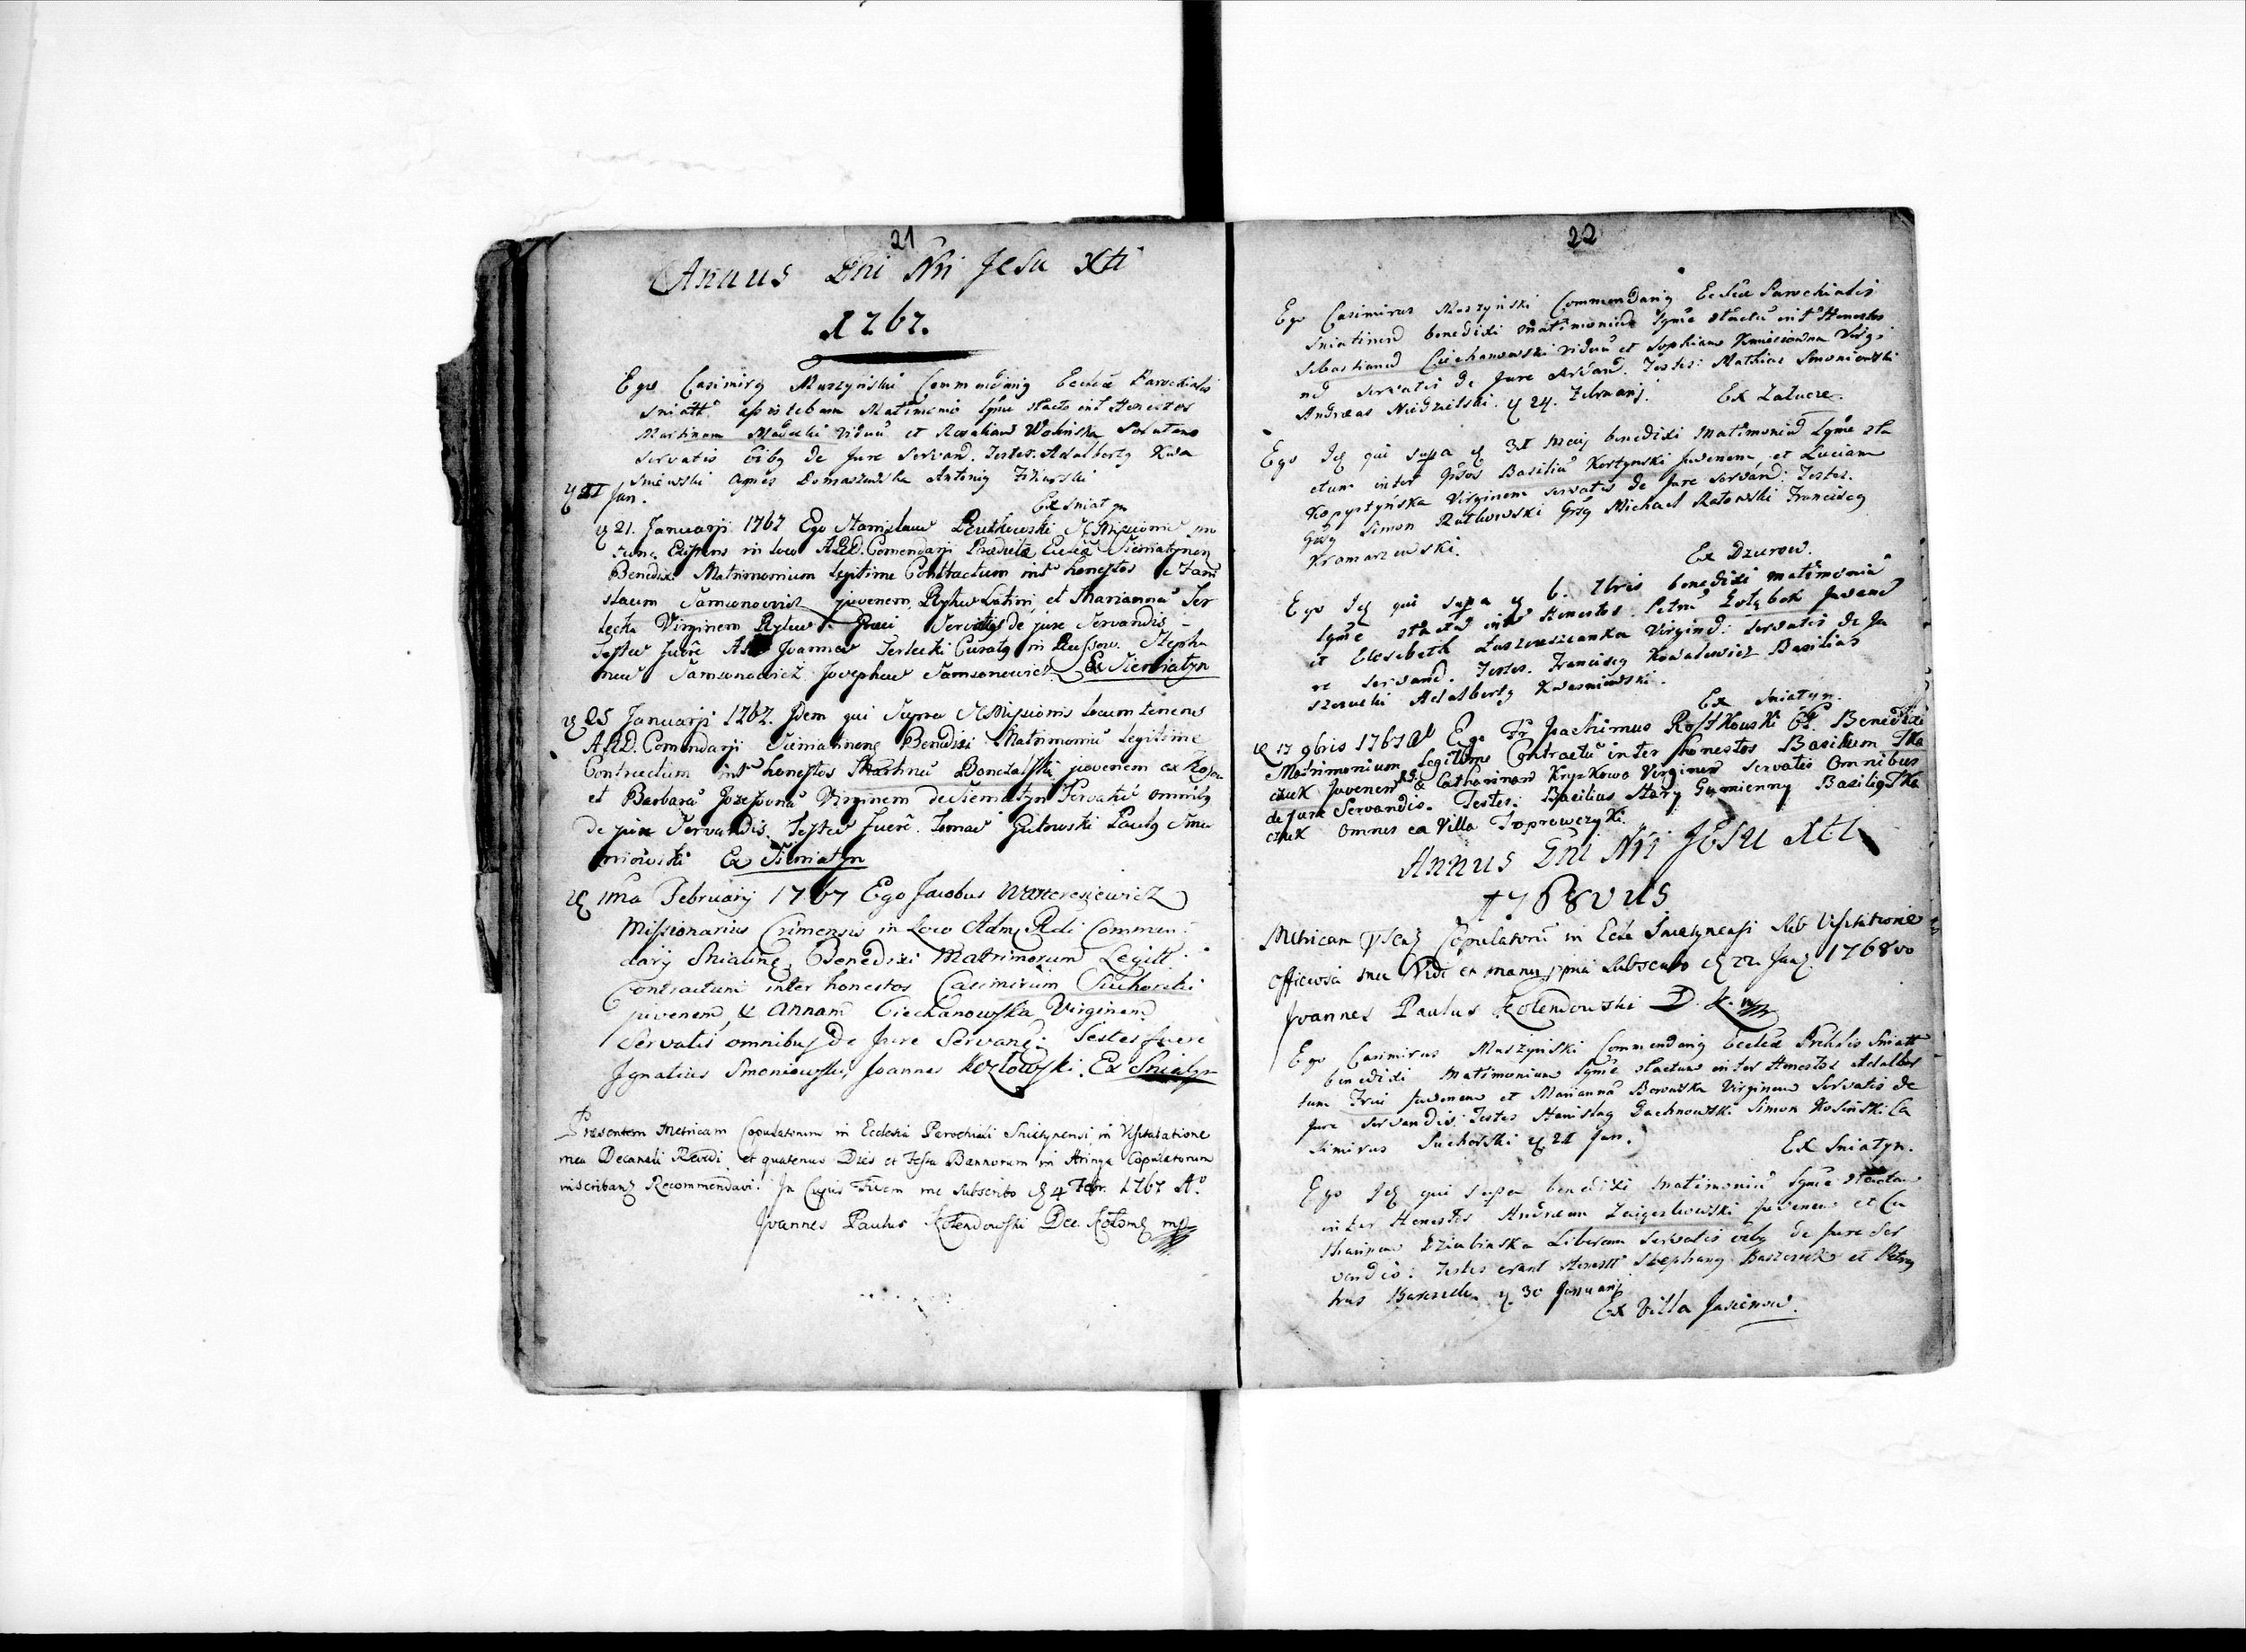 21
Annus Dni Nri Jesu Xti
1767.
Ego Casimirg Muszyński Commendarig Eccliæ Parochialis
Sniatt. assistebam Matrimonio lgme staeto int Honestos
Martinum viduū et Rosaliam Wolinska Solutam
servatis oībg de Jure servand. Testes. Adalbertg Kwa
sniewski Agnes Domaszewska Antonig
Jan.
Ex Sniatyn
21. Januarji 1767 Ego Stanislaus Rutkowski Missionis pro
tunc in loco A.R.D. Comendarji Prædictæ Ecclæ Sieniatynen
Benedixi Matrimonium legitime Contractum int honestos
slaum Samsonowicz juvenem Rytus Latini et Mariannā Ter
lecka Virginem Rytus Græci Servatis de jure Servandis
Testes fuere Joannes Terlecki Curatg in Russow. Stepha
nus Samsonowicz Josephus Samsonowicz Ex Sieniatyn
25 Januarji 1767. Jdem qui Supra Missionis locum tenens
A.R.D. Comendarji Sieniatinens Benedixi Matrimoniū legitime
Contractum int honestos Martinū juvenem ex
et Barbarā Virginem de Sieniatyn Servatis omnibg
de jure Servandis. Testes fuere. Tomas Gutowski Paulg Smo
niowski Ex Sieniatyn
1ma February 1767 Ego Jacobus
Missionarius Crimensis in Loco Adm Rdi Commen
darij Sniatine. Benedixi Matrimonium Legitt.
Contractum inter honestos Casimirum Suchorski
juvenem, & Annam Ciechanowska Virginem
Servatis omnibus De Jure Servand. Testes fuere
Ignatius Smoniowski, Joannes Kozłowski. Ex Sniatyn
Præsentem Metricam Copulatorum in Ecclesia Parochiali Sniatynensi in Visitatione
mea Decanali Revidi, et quatenus Dies et Festa Bannorum in Copulatorum
inscribanz Recommendavi. In Cujus Fidem me subscribo 4 Febr. 1767 Ao.
Joannes Paulus Kolendowski Dec. Kołom mp
22
Ego Casimirus Muszyński Commendarig Eccliæ Parochialis
Sniatinens benedixi matrimoniū lgme staetū int Honestos
Sebastianum Ciechanowski viduū et Sophiam Virgi
nē servatis de Jure servand. Testes: Mathias Smoniowski
Andreas Niedzielski. 24. Februarij. Ex Załucze.
Ego Id qui supra 31 Maij benedixi Matrimoniū lgme sta
ctum inter Basiliū Kostynski Juvenem et Luciam
Kopystyńska Virginem servatis de Jure servand: Testes.
Simon Rutkowski Michael Ratowski Francisceg
Kramarzewski.
Ex Dzurow.
Ego Id qui supra 6. 7bris benedixi matrimoniū
lgme staetū int Honestos. Petrū Gołębek Juvenē
et Elisabeth Virginē: servatis de Ju
re servand. Testes. Franciscg Kowalewicz Basilius
Adalbertg Kwasniewski.
Ex Sniatyn.
17 9bris 1767 Ego Fr Joachimus Rostkowski Benedixi
Matrimonium legitime Contractū inter honestos Basilium Tka
czuk Juvenem & Catharinam Virginem servatis omnibus
de jure Servandis. Testes: Basilius Stary Gumienny Basiligg Tka
czuk omnes ea Villa Toporowczyki.
Annus Dni Nri Jesu Xti
1768vus
Metricam Copulatorū in Eccle Sniatynensi sub Visitatione
officiosa mea Vidi et manu ppria subscribo 22 Jan 1768vo
Joannes Paulus Kolendowski D. K. mp
Ego Casimirus Muszyński Commendarig Eccliæ Prchlis Sniatt
benedixi Matrimonium lgme staetum inter Honestos Adalber
tum Juvenem et Mariannā Virginem servatis de
Jure servandis. Testes Stanislag Simon Kosinski Ca
simirus Suchorski 21 Jan.
Ex Sniatyn.
Ego Id qui supra benedixi Matrimoniū lgme staetum
inter Honestos Andream juvenem et Ca
tharinam Dziubinska Liberam servatis oibg de Jure ser
vandis: Testes erant Honestt Stephang et Petrg
30 Januarij
Ex Villa Jasienow.